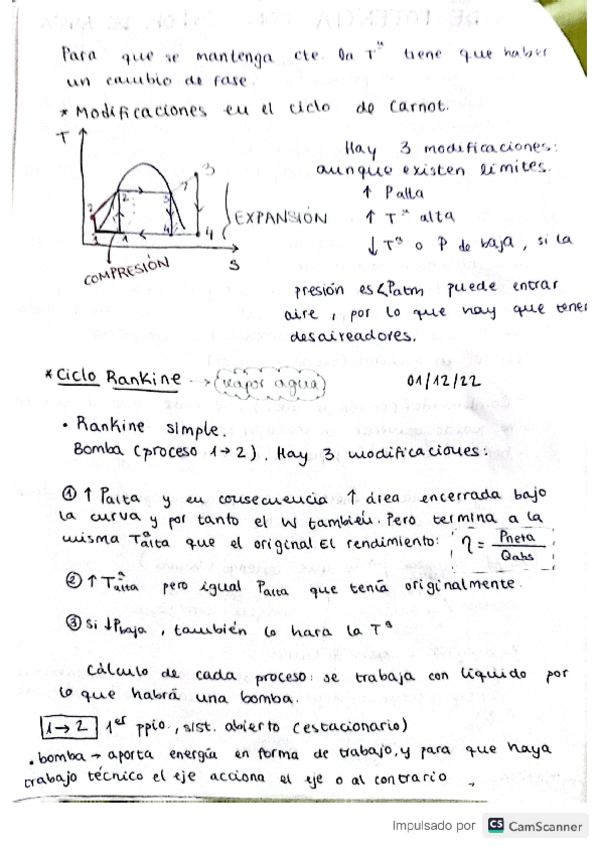 Para que se mantenga cte. la Tª tiene que haber
un cambio de fase.
* Modificaciones en el ciclo de Carnot.
T
Hay 3 modificaciones:
aunque existen límites.
↑ P alta
↑ Tª alta
↓ Tª o P de baja, si la
presión es < Patm puede entrar
aire, por lo que hay que tener
desaireadores.
2
2
3
3
1
1
4
4
EXPANSIÓN
COMPRESIÓN
S
* Ciclo Rankine → (vapor agua)
01/12/22
• Rankine simple.
Bomba (proceso 1→2). Hay 3 modificaciones:
① ↑ Palta y en consecuencia ↑ área encerrada bajo
la curva y por tanto el W también. Pero termina a la
misma Tªalta que el original El rendimiento: η = Pneta / Qabs
② ↑ Tªalta pero igual Palta que tenía originalmente.
③ Si ↓ Pbaja, también lo hara la Tª
Cálculo de cada proceso: se trabaja con líquido por
lo que habrá una bomba.
1→2 1er ppio., sist. abierto (estacionario)
• bomba → aporta energía en forma de trabajo, y para que haya
trabajo técnico el eje acciona el eje o al contrario
Impulsado por CS CamScanner